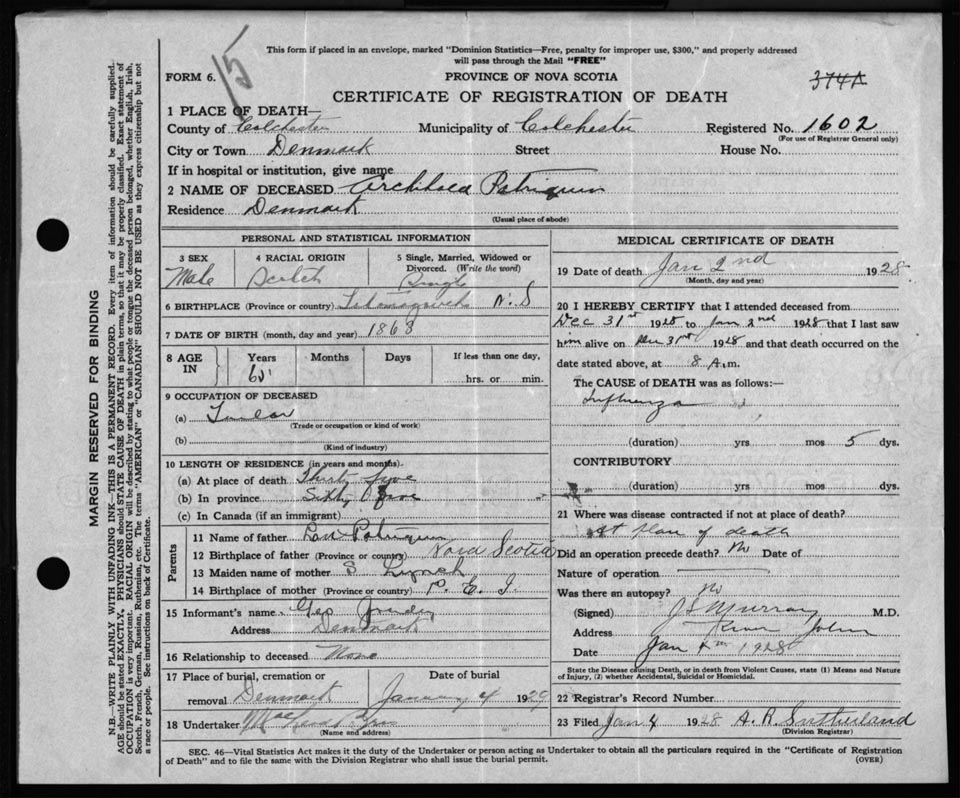 15
This form if placed in an envelope, marked "Dominion Statistics—Free, penalty for improper use, $300," and properly addressed
will pass through the Mail "FREE"
FORM 6.
PROVINCE OF NOVA SCOTIA
374A
CERTIFICATE OF REGISTRATION OF DEATH
1 PLACE OF DEATH—
County of Colchester Municipality of Colchester Registered No. 1602
(For use of Registrar General only)
City or Town Denmark Street House No.
If in hospital or institution, give name
2 NAME OF DECEASED Archibald Patriquin
Residence Denmark
(Usual place of abode)
PERSONAL AND STATISTICAL INFORMATION
3 SEX 4 RACIAL ORIGIN 5 Single, Married, Widowed or
Divorced. (Write the word)
Male Scotch Single
6 BIRTHPLACE (Province or country) Tatamagouche N.S
7 DATE OF BIRTH (month, day and year) 1863
8 AGE IN Years Months Days If less than one day,
65 hrs. or min.
9 OCCUPATION OF DECEASED
(a)
(Trade or occupation or kind of work)
(b)
(Kind of industry)
10 LENGTH OF RESIDENCE (in years and months)—
(a) At place of death Thirty five
(b) In province Sixty five
(c) In Canada (if an immigrant)
Parents
11 Name of father Patriquin
12 Birthplace of father (Province or country) Nova Scotia
13 Maiden name of mother S Lynch
14 Birthplace of mother (Province or country) P. E. I.
15 Informant's name Geo
Address Denmark
16 Relationship to deceased None
17 Place of burial, cremation or Date of burial
removal Denmark January 4 1929
18 Undertaker
(Name and address)
MEDICAL CERTIFICATE OF DEATH
19 Date of death Jan 2nd 1928
(Month, day and year)
20 I HEREBY CERTIFY that I attended deceased from
Dec 31st 1928 to Jan 2nd 1928 that I last saw
him alive on Dec 31st 1928 and that death occurred on the
date stated above, at 8 A.m.
The CAUSE of DEATH was as follows:—
Influenza
(duration) yrs mos 5 dys.
CONTRIBUTORY
(duration) yrs mos dys.
21 Where was disease contracted if not at place of death?
At place of death
Did an operation precede death? No Date of
Nature of operation
Was there an autopsy? No
(Signed) J S Murray M.D.
Address River John
Date Jan 1928
State the Disease causing Death, or in death from Violent Causes, state (1) Means and Nature
of Injury, (2) whether Accidental, Suicidal or Homicidal.
22 Registrar's Record Number
23 Filed Jan 4 1928 A. R. Sutherland
(Division Registrar)
SEC. 46—Vital Statistics Act makes it the duty of the Undertaker or person acting as Undertaker to obtain all the particulars required in the "Certificate of Registration
of Death" and to file the same with the Division Registrar who shall issue the burial permit.
(OVER)
MARGIN RESERVED FOR BINDING
N.B.—WRITE PLAINLY WITH UNFADING INK—THIS IS A PERMANENT RECORD. Every item of information should be carefully supplied.
AGE should be stated EXACTLY. PHYSICIANS should STATE CAUSE OF DEATH in plain terms, so that it may be properly classified. Exact statement of
OCCUPATION is very important. RACIAL ORIGIN will be described by stating to what people or tongue the deceased person belonged, whether English, Irish,
Scotch, French, German, Russian, Ruthenian, etc. The terms "AMERICAN" or "CANADIAN" SHOULD NOT BE USED as they express citizenship but not
a race or people. See instructions on back of Certificate.